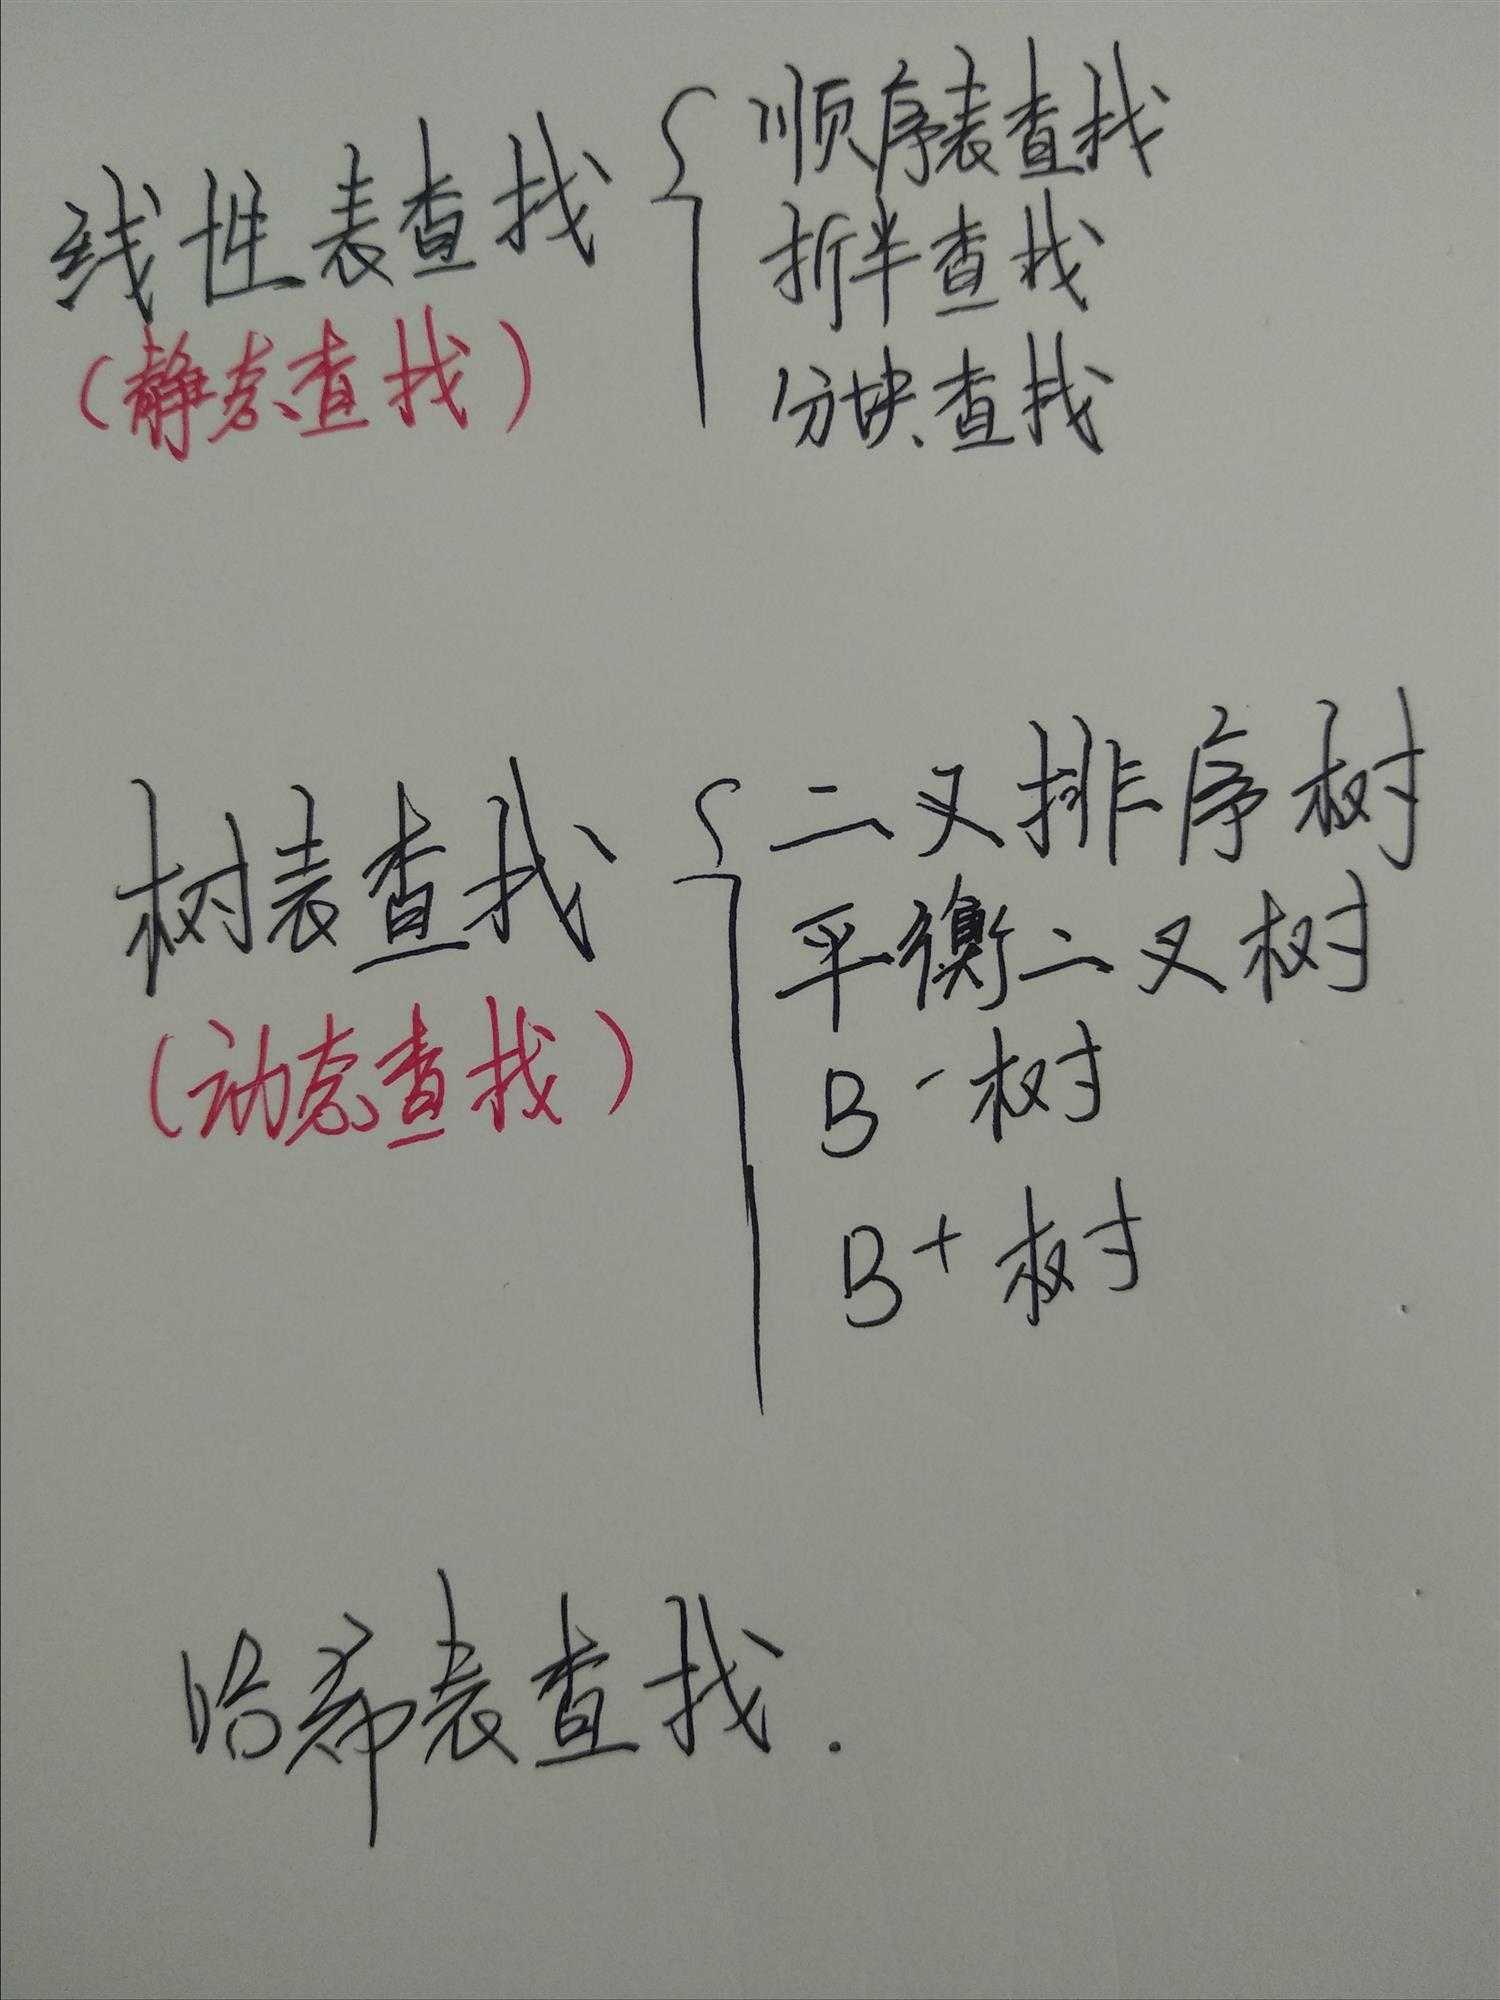 线性表查找
(静态查找)
顺序表查找
折半查找
分块查找
树表查找
(动态查找)
二叉排序树
平衡二叉树
B-树
B+树
哈希表查找.